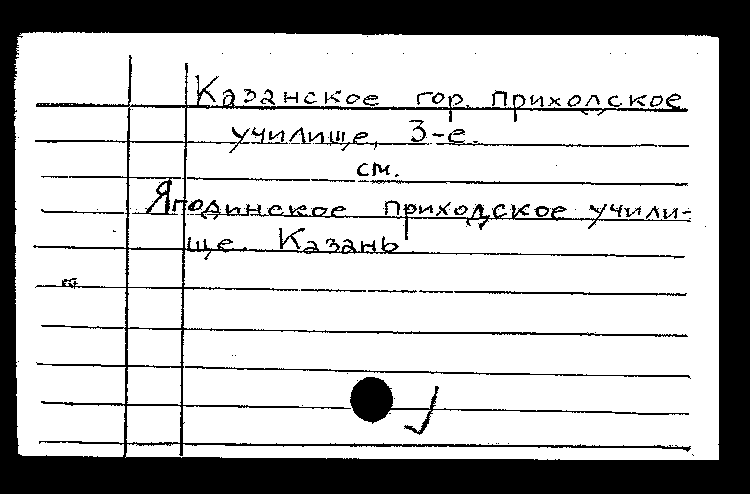 Казанское гор. приходское
училище, 3-е.
см.
Яподинское приходское учили-
ще. Казань